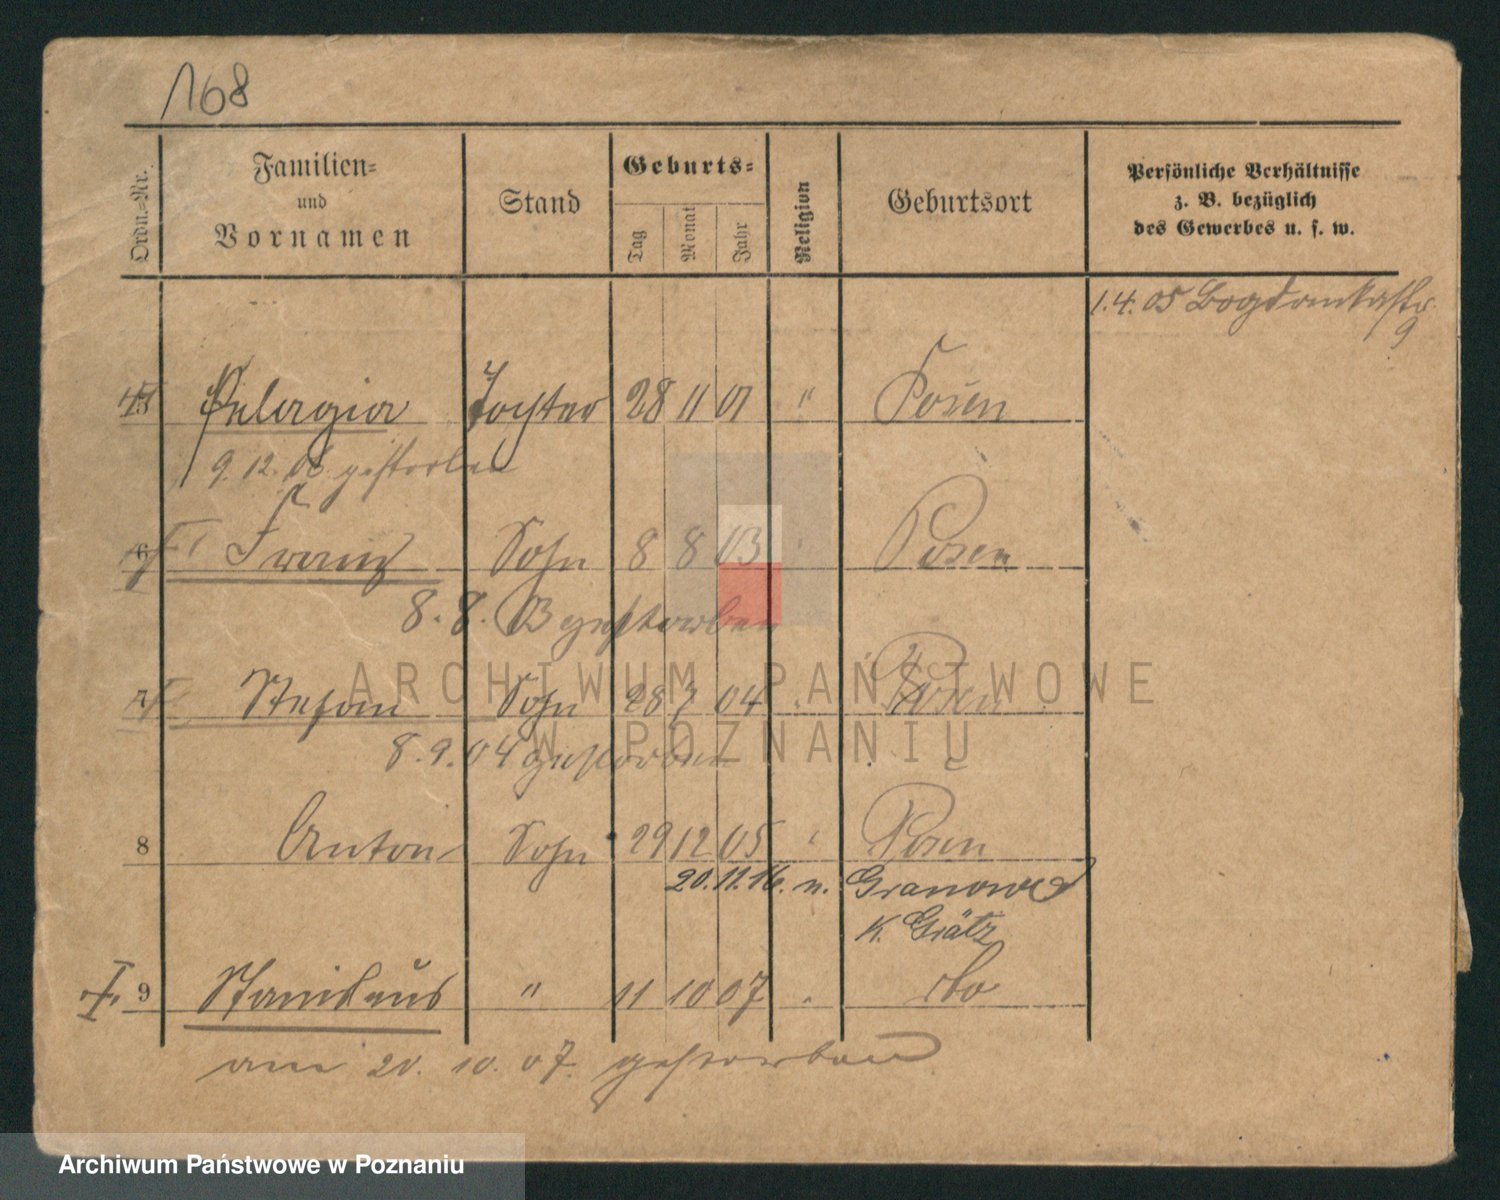 168
Ordn.-Nr.
Familien-
und
Vornamen
Stand
Geburts-
Tag
Monat
Jahr
Religion
Geburtsort
Persönliche Verhältnisse
z. B. bezüglich
des Gewerbes u. s. w.
1. 4. 05 Bogdankastr.
9
5 Pelagia Tochter 28 11 01 " Posen
9. 12. gestorben
6 Franz Sohn 8 8 03 Posen
8. 8. 03 gestorben
7 Stefan Sohn 28 7 04 Posen
8. 9. 04 gestorben
8 Anton Sohn 29 12 05 Posen
20. 11. 16. n. Granowo
K. Grätz
9 Stanislaus " 11 10 07 dto
am 20. 10. 07. gestorben
ARCHIWUM PAŃSTWOWE
W POZNANIU
Archiwum Państwowe w Poznaniu